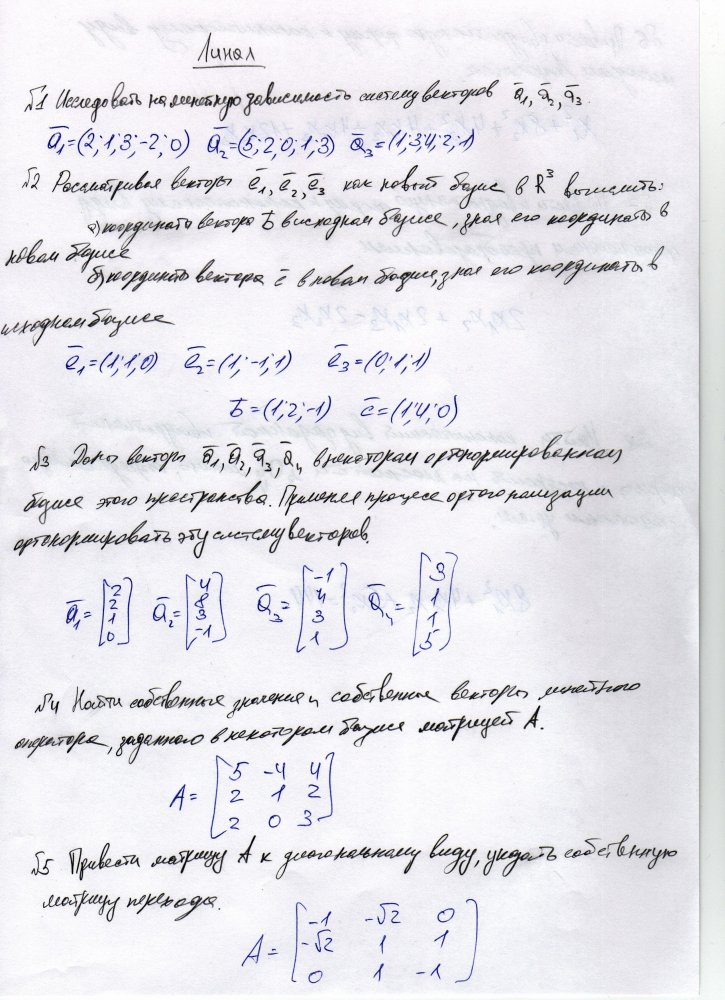 Линал
№1 Исследовать на линейную зависимость систему векторов a̅1, a̅2, a̅3.
a̅1=(2;1;3;-2;0) a̅2=(5;2;0;1;3) a̅3=(1;3;4;2;1)
№2 Рассматривая векторы e̅1, e̅2, e̅3 как новый базис в R³ вычислить:
а) координаты вектора b̅ в исходном базисе, зная его координаты в
новом базисе
б) координаты вектора c̅ в новом базисе, зная его координаты в
исходном базисе
e̅1=(1;1;0) e̅2=(1;-1;1) e̅3=(0;1;1)
b̅=(1;2;-1) c̅=(1;4;0)
№3 Даны векторы a̅1, a̅2, a̅3, a̅4 в некотором ортонормированном
базисе этого пространства. Применяя процесс ортогонализации
ортонормировать эту систему векторов.
a̅1=[2 2 1 0] a̅2=[4 8 3 -1] a̅3=[-1 4 3 1] a̅4=[3 1 1 5]
№4 Найти собственные значения и собственные векторы линейного
оператора, заданного в некотором базисе матрицей A.
5 -4 4
A= 2 1 2
2 0 3
№5 Привести матрицу A к диагональному виду, указать собственную
матрицу перехода.
-1 -√2 0
A= -√2 1 1
0 1 -1